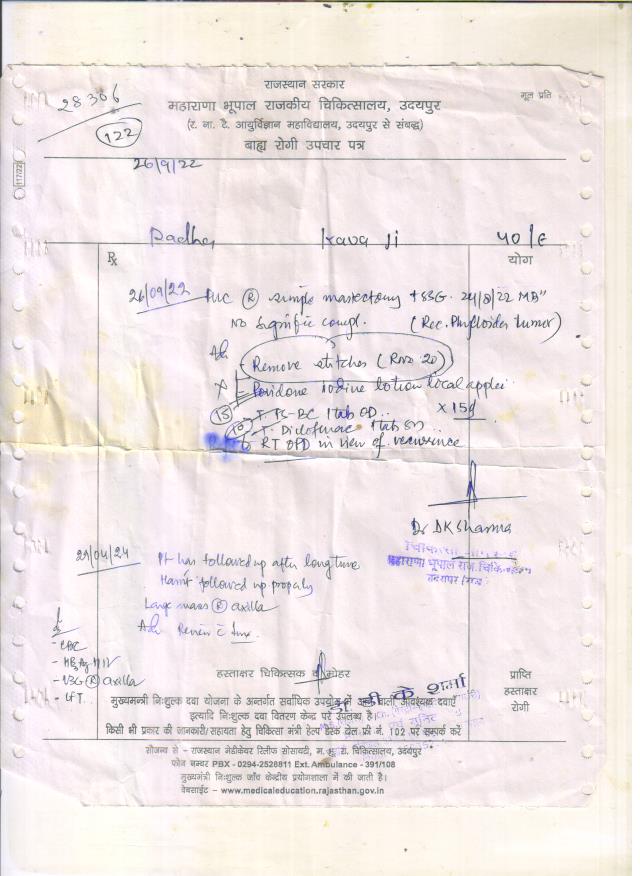 राजस्थान सरकार
मूल प्रति
28306
महाराणा भूपाल राजकीय चिकित्सालय, उदयपुर
122
(र. ना. टै. आयुर्विज्ञान महाविद्यालय, उदयपुर से संबद्ध)
बाह्य रोगी उपचार पत्र
117/22
26/9/22
40/F
Rx
योग
26/09/22 simple mastectomy + SSG. 24/8/22
No significt compl. (Rec. Phylloides tumor)
Adv
Remove stitches (Rno 20)
Povidone Iodine lotion local
15 T. BC 1 tab OD.. x 15d
10 T. Diclofenac 1 tab
RT OPD in view of recurrence
Dr DK Sharma
महाराणा भूपाल राज. चिकि.
उदयपुर (राज.)
29/04/24 Pt has followed up after long time
Hasn't followed up properly
Large mass R axilla
Adv Review c
- CBC
- USG R axilla
- LFT
हस्ताक्षर चिकित्सक मय मोहर
प्राप्ति
हस्ताक्षर
रोगी
डॉ. डी के शर्मा
मुख्यमन्त्री निःशुल्क दवा योजना के अन्तर्गत सर्वाधिक उपयोग में आने वाली आवश्यक दवाएँ
इत्यादि निःशुल्क दवा वितरण केन्द्र पर उपलब्ध है।
किसी भी प्रकार की जानकारी/सहायता हेतु चिकित्सा मंत्री हेल्प डेस्क टोल फ्री नं. 102 पर सम्पर्क करें
सौजन्य से - राजस्थान मेडीकेयर रिलीफ सोसायटी, म. भू. रा. चिकित्सालय, उदयपुर
फोन नम्बर PBX - 0294-2528811 Ext. Ambulance - 391/108
मुख्यमंत्री निःशुल्क जाँच केन्द्रीय प्रयोगशाला में की जाती है।
वेबसाईट - www.medicaleducation.rajasthan.gov.in